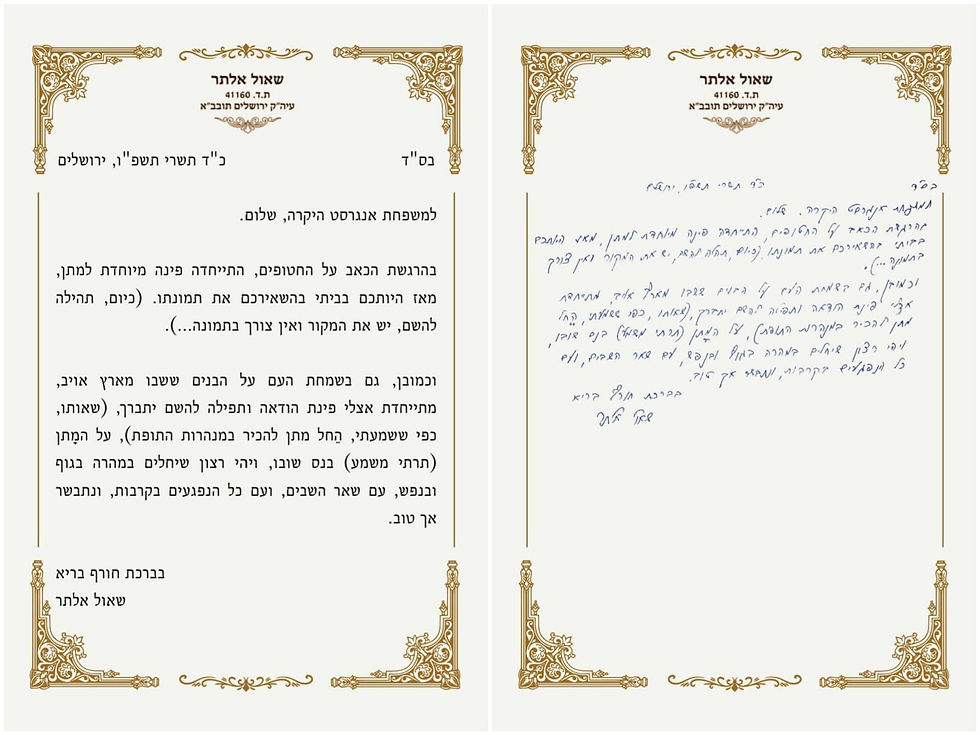 שאול אלתר
ת.ד. 41160
עיה"ק ירושלים תובב"א
בס"ד כ"ד תשרי תשפ"ו, ירושלים
למשפחת אנגרסט היקרה, שלום.
בהרגשת הכאב על החטופים, התייחדה פינה מיוחדת למתן,
מאז היותכם בביתי בהשאירכם את תמונתו. (כיום, תהילה
להשם, יש את המקור ואין צורך בתמונה...).
וכמובן, גם בשמחת העם על הבנים ששבו מארץ אויב,
מתייחדת אצלי פינת הודאה ותפילה להשם יתברך, (שאותו,
כפי ששמעתי, הֵחל מתן להכיר במנהרות התופת), על המָתן
(תרתי משמע) בנס שובו, ויהי רצון שיחלים במהרה בגוף
ובנפש, עם שאר השבים, ועם כל הנפגעים בקרבות, ונתבשר
אך טוב.
בברכת חורף בריא
שאול אלתר
שאול אלתר
ת.ד. 41160
עיה"ק ירושלים תובב"א
בס"ד כ"ד תשרי תשפ"ו, ירושלים
למשפחת אנגרסט היקרה, שלום.
בהרגשת הכאב על החטופים, התיחדה פינה מיוחדת למתן, מאז היותכם
בביתי בהשאירכם את תמונתו. (כיום, תהלה להשם, יש את המקור ואין צורך
בתמונה...).
וכמובן, גם בשמחת העם על הבנים ששבו מארץ אויב, מתיחדת
אצלי פינת הודאה ותפילה להשם יתברך, (שאותו, כפי ששמעתי, הֵחל
מתן להכיר במנהרות התופת), על המָתן (תרתי משמע) בנס שובו,
ויהי רצון שיחלים במהרה בגוף ובנפש, עם שאר השבים, ועם
כל הנפגעים בקרבות, ונתבשר אך טוב.
בברכת חורף בריא
שאול אלתר